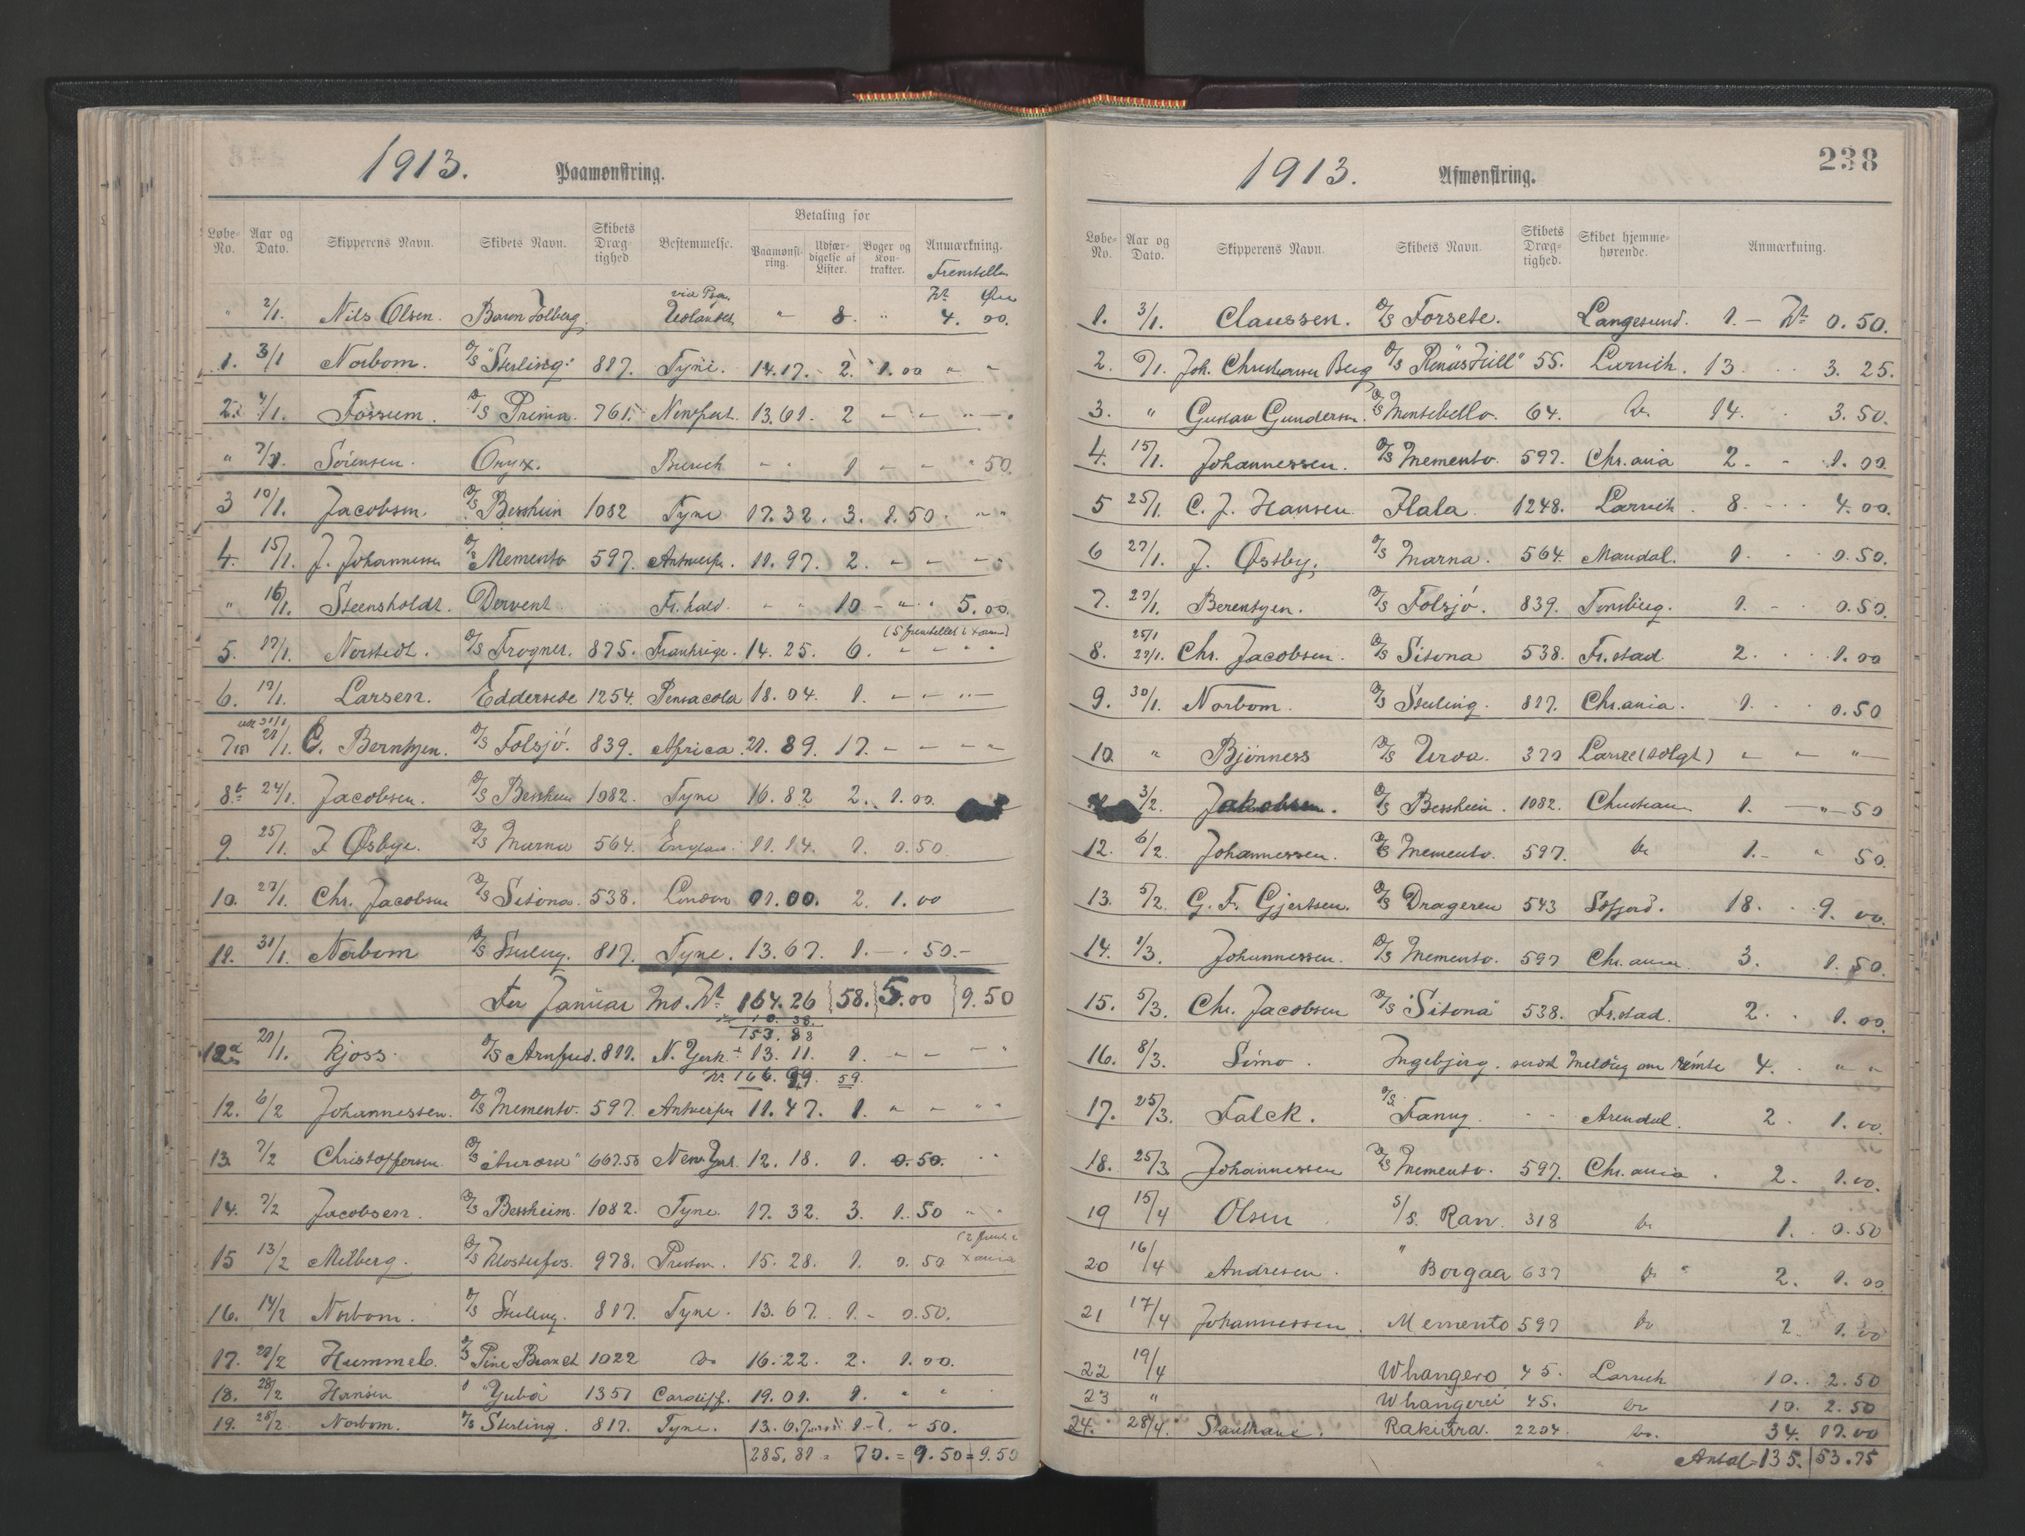 1913. Paamønstring.
Løbe-No. Aar og Dato. Skipperens Navn. Skibets Navn. Skibets Dræg-tighed Bestemmelse. Betaling for Paamønst-ring. Udfær-digelse af Lister. Bøger og Kon-trakter. Anmærkning.
Kr Øre
" 2/1. Nils Olsen. Baron Holberg. via Udlandet " 8 " 4.00.
1. 3/1 Norbom. D/S "Sterling" 817. Tyne. 14.17. - 2. 1.00 " "
2. 7/1. Fossum. D/S Prima. 761. Newport. 13.61. 2 - - " -
" 7/1. Sörensen. Onyx. - - 1 - - " 50.
3 10/1. Jacobsen. D/S Bessheim 1082 Tyne 17.32. 3. 1.50. " "
4. 15/1. J. Johannessen D/S Memento 597. Antwerpen. 11.97. 2. - - - -
" 16/1. Steensholdt. Derwent. Fr.hald. - - 10 - " " 5.00.
5. 17/1. Norstedt. D/S Frogner. 875. Frankrige. 14.25. 6. - - " "
6. 17/1. Larsen. Edderside 1254. Pensacola 18.04. 1. - - " -
7 21/1. C. Berntzen. D/S Folsjö. 839. Africa. 21.89. 17. - - " "
8 24/1. Jacobsen. D/S Bessheim 1082. Tyne 16.82 2. 1.00.
9. 25/1. J Østbye. D/S Marna 564. England. 11.14. 1. 0.50.
10. 27/1. Chr. Jacobsen D/S Sitona. 538. London 11.00. 2. 1.00
11. 31/1. Norbom D/S Sterling. 817. Tyne. 13.67. 1. - . 50. -
For Januar Md. Kr 164.26 58. 5.00 9.50
10.38.
153.88
12a 21/1. Kjoss. D/S Arnfred. 811. N. York + 13.11. 1. - - " "
Kr. 166.99. 59.
12. 6/2 Johannessen. D/S Memento. 597. Antwerpen 11.47. 1. " - " "
13. 7/2 Christoffersen. D/S "Aurora" 667.58 New York. 12.18. 1. 0.50. " "
14. 7/2 Jacobsen. D/S Bessheim. 1082. Tyne. 17.32. 3. 1.50 " "
15 13/2 Melberg. D/S Klosterfos. 978. Preston. 15.28. 1. 0.50
16. 14/2 Norbom. D/S Sterling. 817. Tyne. 13.67. 1. - 0.50.
17. 21/2 Hummel. D/S Pine Branch 1022 do 16.22. 2. 1.00.
18. 28/2 Hansen "Yuba 1351 Cardiff. 19.01. 1. " "
19. 28/2. Norbom. D/S Sterling. 817. Tyne. 13.67 1- " 50.
285.81 = 70. = 9.50 = 9.50
1913. Afmønstring. 238
Løbe-No. Aar og Dato. Skipperens Navn. Skibets Navn. Skibets Dræg-tighed. Skibet hjemme-hørende. Anmærkning.
1. 3/1. Claussen. D/S Forsete. Langesund. 1. - Kr 0.50.
2. 9/1. Joh. Christiansen Berg D/S "Renäs Hill" 55. Larvik. 13. . . 3.25.
3. " Gustav Gundersen. D/S Montebello. 64. do 14. . 3.50.
4. 15/1. Johannessen. D/S Memento. 597. Chr.ania 2. - 1.00
5 25/1. C. J. Hansen. Hala. 1248. Larvik. 8. . . . 4.00.
6 27/1. J. Østby. D/S Marna. 564. Mandal. 1. . . 0.50.
7. 27/1. Berentzen. D/S Folsjö. 839. Tønsberg. 1. - . 0.50.
8. 25/1 27/1. Chr. Jacobsen. D/S Sitona 538. Fr.stad. 2. . . 1.00
9. 30/1. Norbom. D/S Sterling. 817. Chr.ania. 1. . . 0.50
10. " Bjönness D/S Urda. 370 (solgt) " " "
3/2. Jakobsen. D/S Bessheim. 1082. Christiania 1. - " - 50
12. 6/2. Johannessen. D/S Memento. 597. do 1. - " 50.
13. 5/2. G. F. Gjertsen. D/S Drageren 543 18. . . 9.00.
14. 1/3. Johannessen. D/S Memento. 597 Chr.ania. 3. 1.50.
15. 5/3. Chr. Jacobsen D/S "Sitona" 538. Fr.stad. 2. . 1.00.
16. 8/3. Simo. Ingebjørg. sendt Melding om Rømte 4. . " "
17. 25/3. Falck. D/S. Fanny - - Arendal. 2. 1.00.
18. 25/3 Johannessen D/S Memento. 597. Chr.ania. 2. 1.00.
19 15/4 Olsen S/S. Ran. 318 do 1. . 0.50
20 16/4 Andresen. " Borgaa 637 do " 2. 1.00
21 17/4 Johannessen. Memento 597 do 2. 1.00
22 19/4 Whangero 45. Larvik 10. . 2.50
23 " Whangerei 45. do 10. 2.50
24. 28/4. Rakiura. 2204. do. 34. 17.00
Antal = 135. 53.75